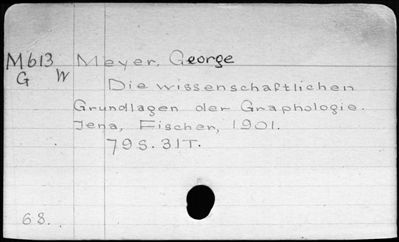 M613 Meyer, George
G W
Die wissenschaftlichen
Grundlagen der Graphologie.
Jena, Fischer, 1901.
79 S. 31T.
68.